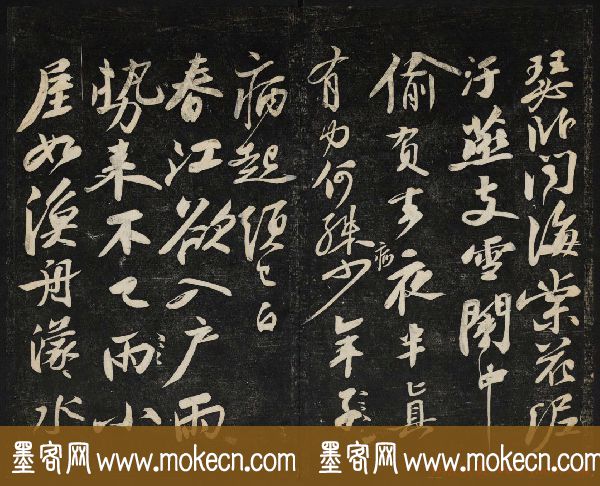 瑟臥聞海棠花泥
汙燕支雪闇中
偷負去夜半真
有力何殊病少年子
病起須已白
春江欲入戶雨
勢來不已雨小
屋如漁舟濛〻水
墨客网 www.mokecn.com 墨客网 www.mokecn.com